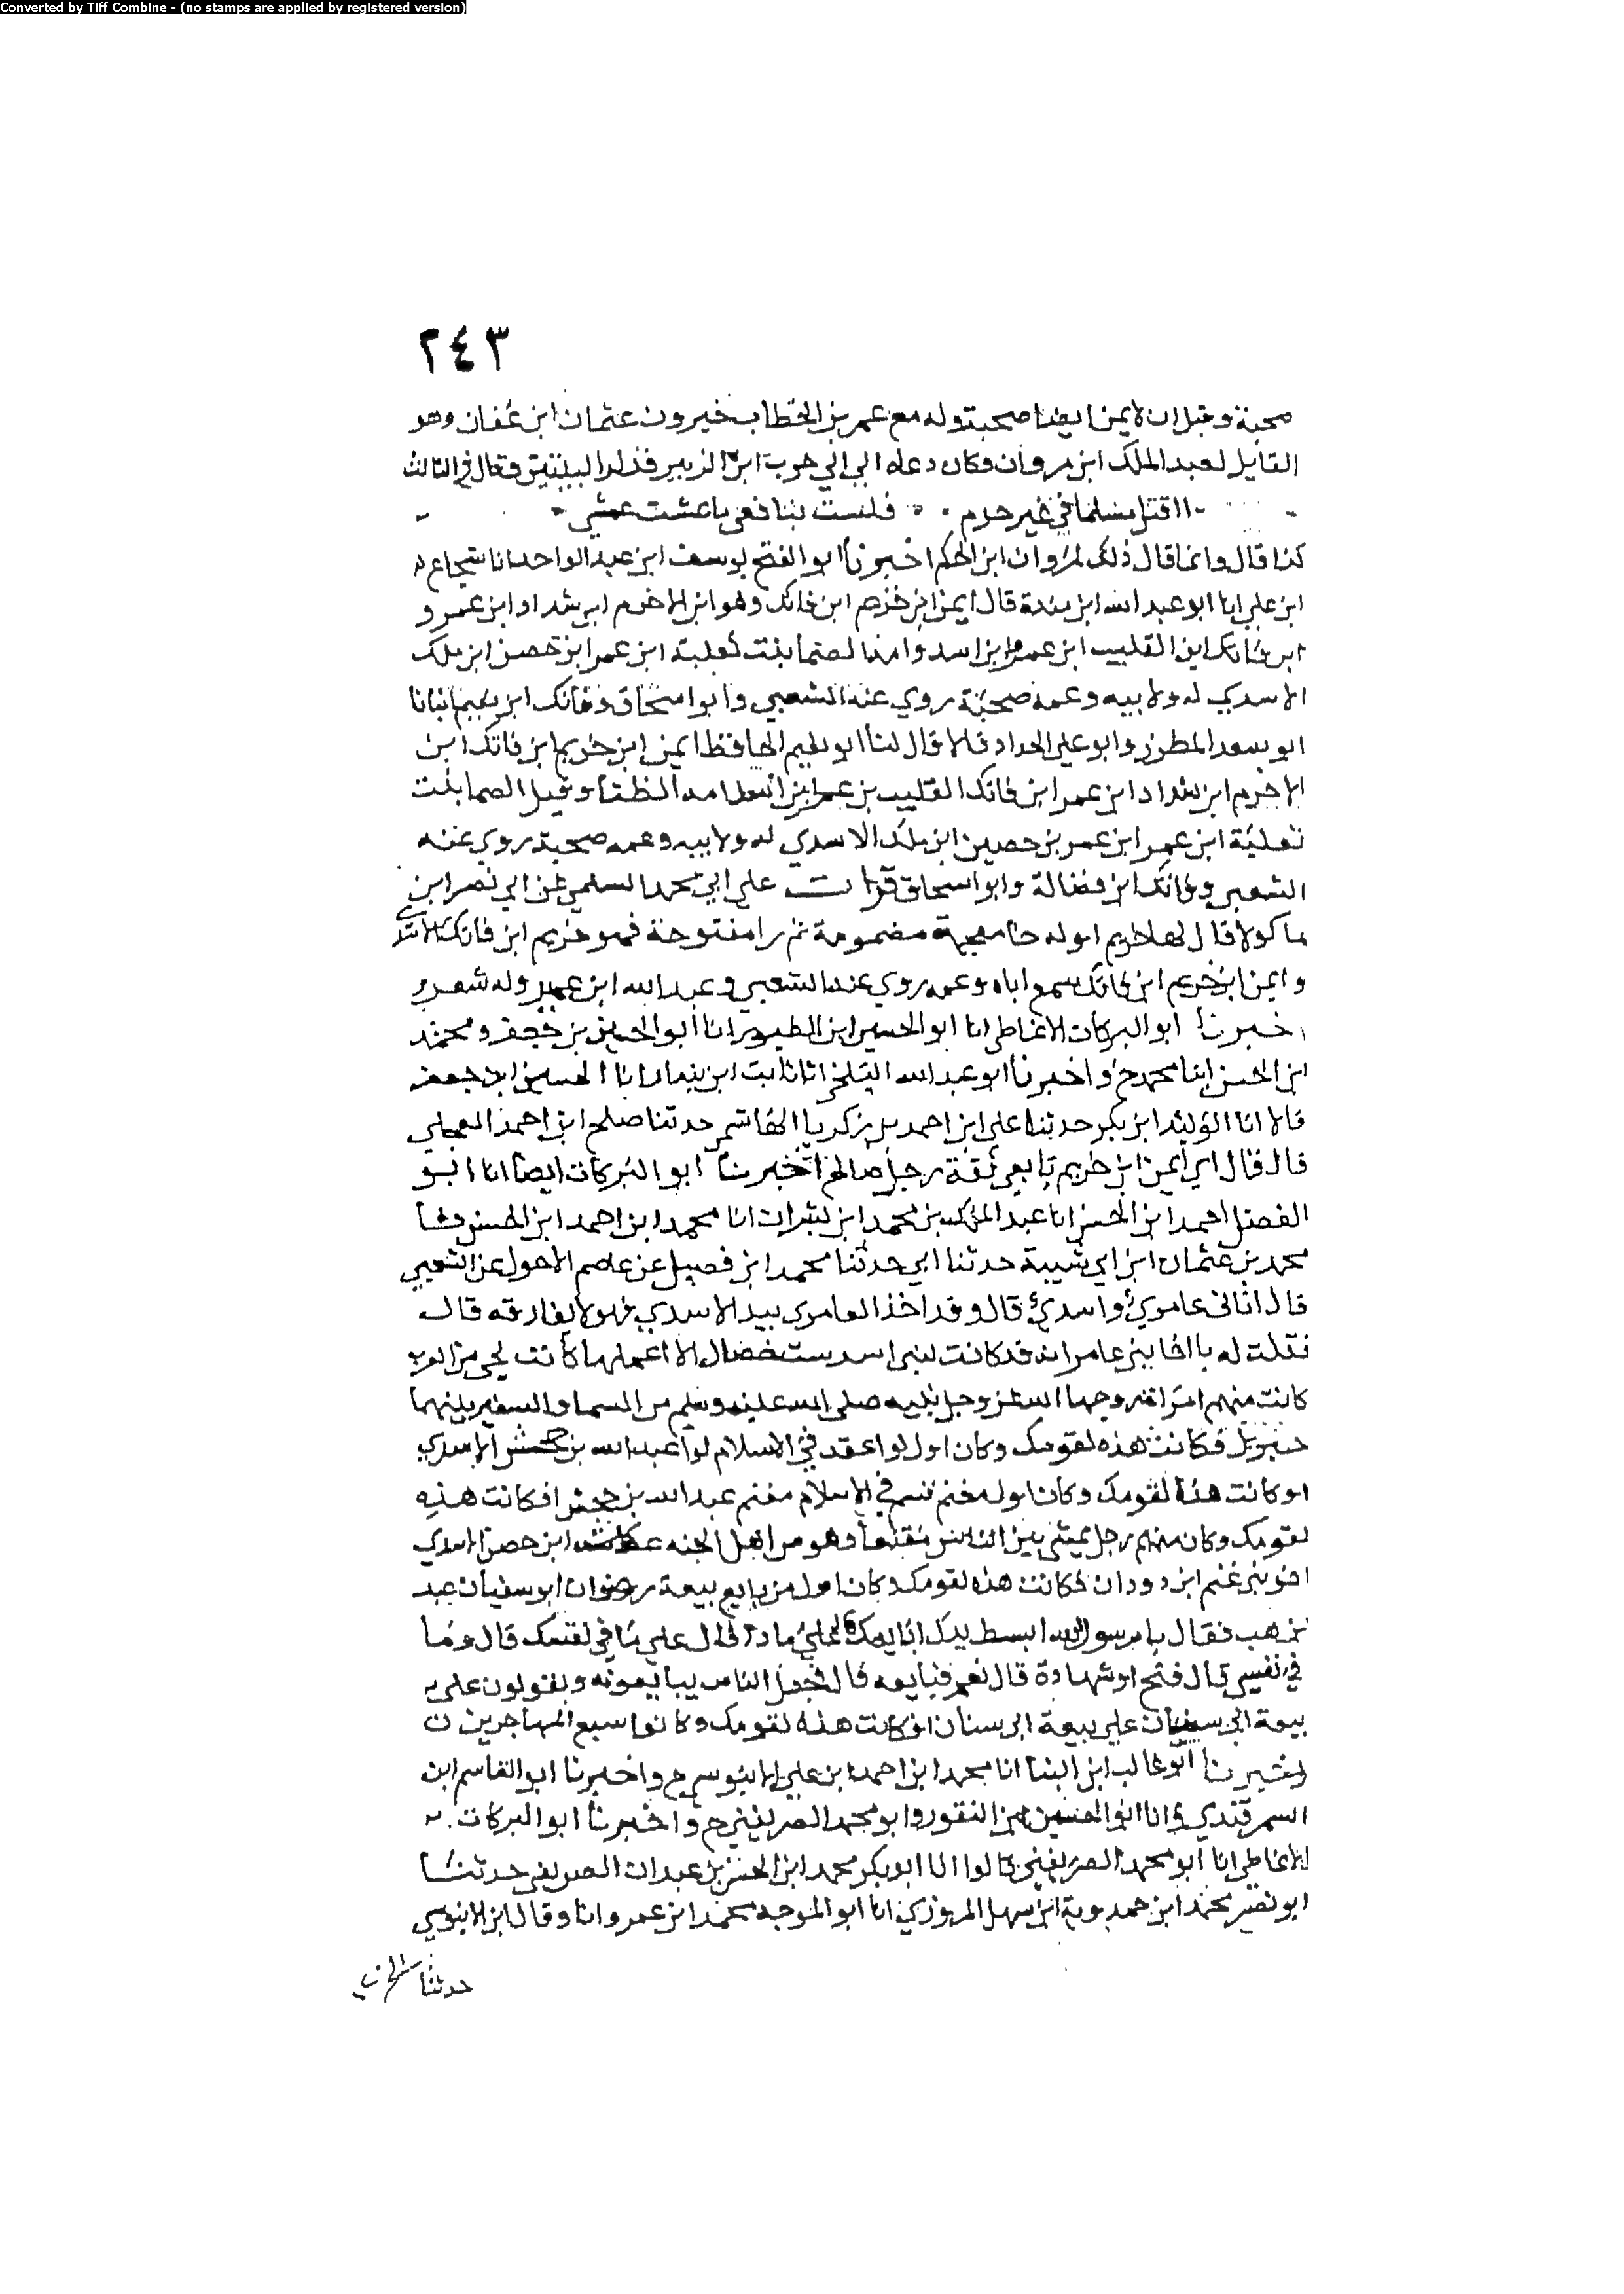 Converted by Tiff Combine - (no stamps are applied by registered version)
٢٤٣
صحبة وقيل ان لايمن ايضا صحبة وله مع عمر بن الخطاب خبر ومن عثمان ابن عفان وهو
القايل لعبد الملك ابن مروان وكان دعاه الى حرب ابن الزبير فذكر البيتين وقال في الثالث
ااقتل مسلما في غير جرم فلست بنافعي ما عشت عيشي
كذا قال وانما قال ذلك لمروان ابن الحكم اخبرنا ابو الفتح يوسف ابن عبد الواحد انا شجاع
ابن علي انا ابو عبد الله ابن مندة قال ايمن ابن خزيم ابن فاتك وهو ابن الاخرم ابن شداد ابن عمرو
ابن فاتك ابن القليب ابن عمرو ابن اسد وامه الصما بنت ثعلبة ابن عمر ابن حصن ابن ملك
الاسدي له ولابيه وعمه صحبة روي عنه الشعبي وابو اسحاق وفاتك ابن انبانا
ابو سعد المطرز وابو علي الحداد قالا قال لنا ابو نعيم الحافظ ايمن ابن خريم ابن فاتك ابن
الاخرم ابن شداد ابن عمر ابن فاتك القليب بن عمر ابن اسد امه وقيل الصما بنت
ثعلبة ابن عمر ابن عمر بن حصين ابن ملك الاسدي له ولابيه وعمه صحبة روي عنه
الشعبي وفاتك ابن فضالة وابو اسحاق قرات على ابي محمد السلمي عن ابي نصر ابن
ماكولا قال اما خريم اوله خا معجمة مضمومة ثم را مفتوحة فهو خريم ابن فاتك الاسدي
وايمن ابن خريم ابن فاتك سمع اباه وعمه روي عنه الشعبي وعبد الله ابن عمير وله شعر
اخبرنا ابو البركات الانماطي انا ابو الحسين ابن الطيوري انا ابو الحسين بن جعفر ومحمد
ابن الحسن ابنا محمد ح واخبرنا ابو عبد الله البلخي انا ثابت ابن بندار انا الحسين ابن جعفر
قالا انا الوليد ابن بكر حدثنا علي ابن احمد بن زكريا الهاشمي حدثنا صلح ابن احمد العجلي
قال قال ابي ايمن ابن خريم تابعي ثقة رجل صالح اخبرنا ابو البركات ايضا انا ابو
الفضل احمد ابن الحسن انا عبد الملك بن محمد ابن بشران انا محمد ابن احمد ابن الحسن
محمد بن عثمان ابن ابي شيبة حدثنا ابي حدثنا محمد ابن فضيل عن عاصم الاحول عن الشعبي
قال اتاني عامري واسدي قال وقد اخذ العامري بيد الاسدي فهو لا يفارقه قال
فقلت له يا اخا بني عامر انه قد كانت لبني اسد ست خصال لا اعملها كانت لحي من العرب
كانت منهم امراة زوجها الله عز وجل نبيه صلى الله عليه وسلم من السما والسفير بينهما
جبريل فكانت هذه لقومك وكان اول لوا عقد في الاسلام لوا عبد الله بن جحش الاسدي
اوكانت هذه لقومك وكان اول مغنم قسم في الاسلام مغنم عبد الله بن جحش افكانت هذه
لقومك وكان منهم رجل يمشي بين الناس مقنعا وهو من اهل الجنه عكاشه ابن حصن الاسدي
اخو بني غنم ابن دودان فكانت هذه لقومك وكان اول من بايع بيعة رضوان ابو سفيان عبد
بن وهب فقال يا رسول الله ابسط يدك ابايعك قال على ماذا قال على ما في نفسك قال وما
في نفسي قال فتح او شهادة قال نعم فبايعه قال فجعل الناس يبايعونه ويقولون على
بيعة ابي سفيان على بيعة ابي سنان افكانت هذه لقومك وكانوا سبع المهاجرين
اخبرنا ابو غالب ابن البنا انا محمد ابن احمد ابن علي الابنوسي ح واخبرنا ابو القاسم ابن
السمرقندي انا ابو الحسين ابن النقور وابو محمد الصريفيني ح واخبرنا ابو البركات
الانماطي انا ابو محمد الصريفيني قالوا انا ابو بكر محمد ابن الحسن بن عبدان الصيرفي حدثنا
ابو نصر محمد ابن حمدوية ابن سهل المروزي انا ابو الموجه محمد ابن عمرو انا وقال ابن الابنوسي
حدثنا